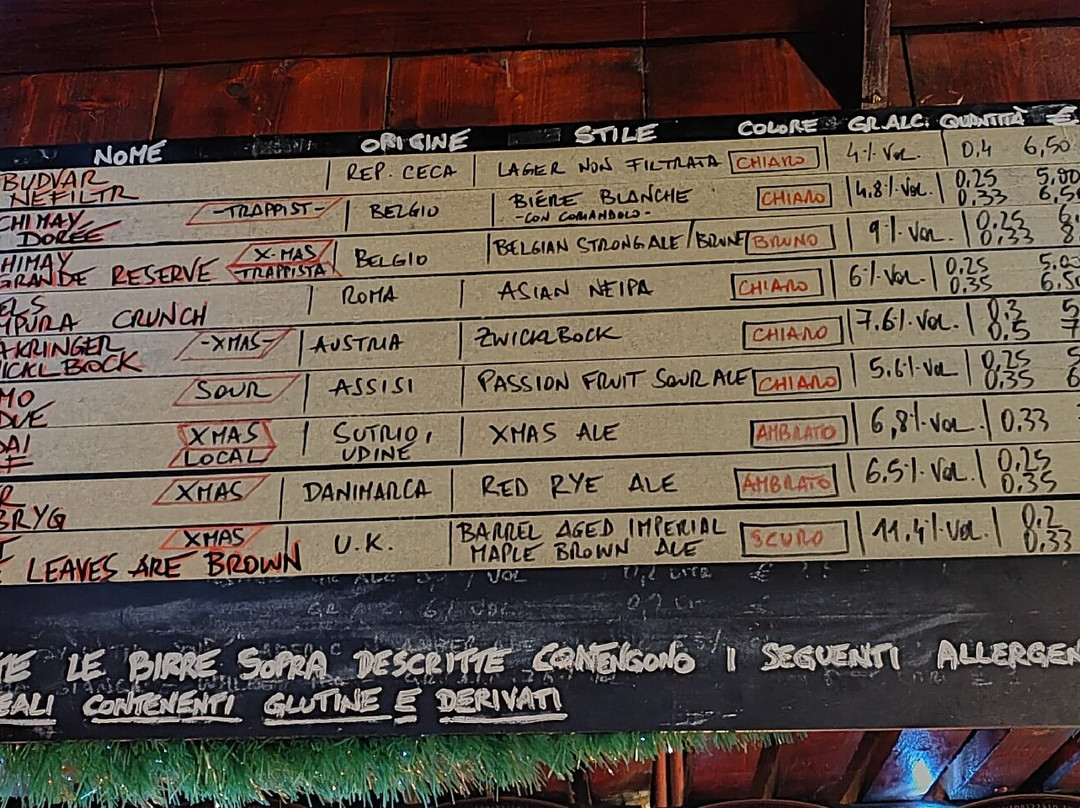 NOME ORIGINE STILE COLORE GR.ALC. QUANTITÀ €
BUDVAR REP. CECA LAGER NON FILTRATA CHIARO 4% VOL. 0,4 6,50
NEFILTR
CHIMAY -TRAPPIST- BELGIO BIÉRE BLANCHE CHIARO 4.8% VOL. 0,25 5,00
DORÉE -CON CORIANDOLO- 0,33 6,50
HIMAY X-MAS BELGIO BELGIAN STRONG ALE/BRUNE BRUNO 9% VOL. 0,25
GRANDE RESERVE TRAPPISTA 0,33
ELS ROMA ASIAN NEIPA CHIARO 6% VOL. 0,25
MPURA CRUNCH 0,35 6,50
AKRINGER -XMAS- AUSTRIA ZWICKLBOCK CHIARO 7.6% VOL. 0,3 5
ICKLBOCK 0,5 7
MO SOUR ASSISI PASSION FRUIT SOUR ALE CHIARO 5.6% VOL. 0,25
DUE 0,35
DAI XMAS SUTRIO, XMAS ALE AMBRATO 6,8% VOL. 0.33
LOCAL UDINE
R XMAS DANIMARCA RED RYE ALE AMBRATO 6,5% VOL. 0,25
BRYG 0,35
XMAS U.K. BARREL AGED IMPERIAL SCURO 11,4% VOL. 0,2
E LEAVES ARE BROWN MAPLE BROWN ALE 0,33
TE LE BIRRE SOPRA DESCRITTE CONTENGONO I SEGUENTI ALLERGEN
EALI CONTENENTI GLUTINE E DERIVATI